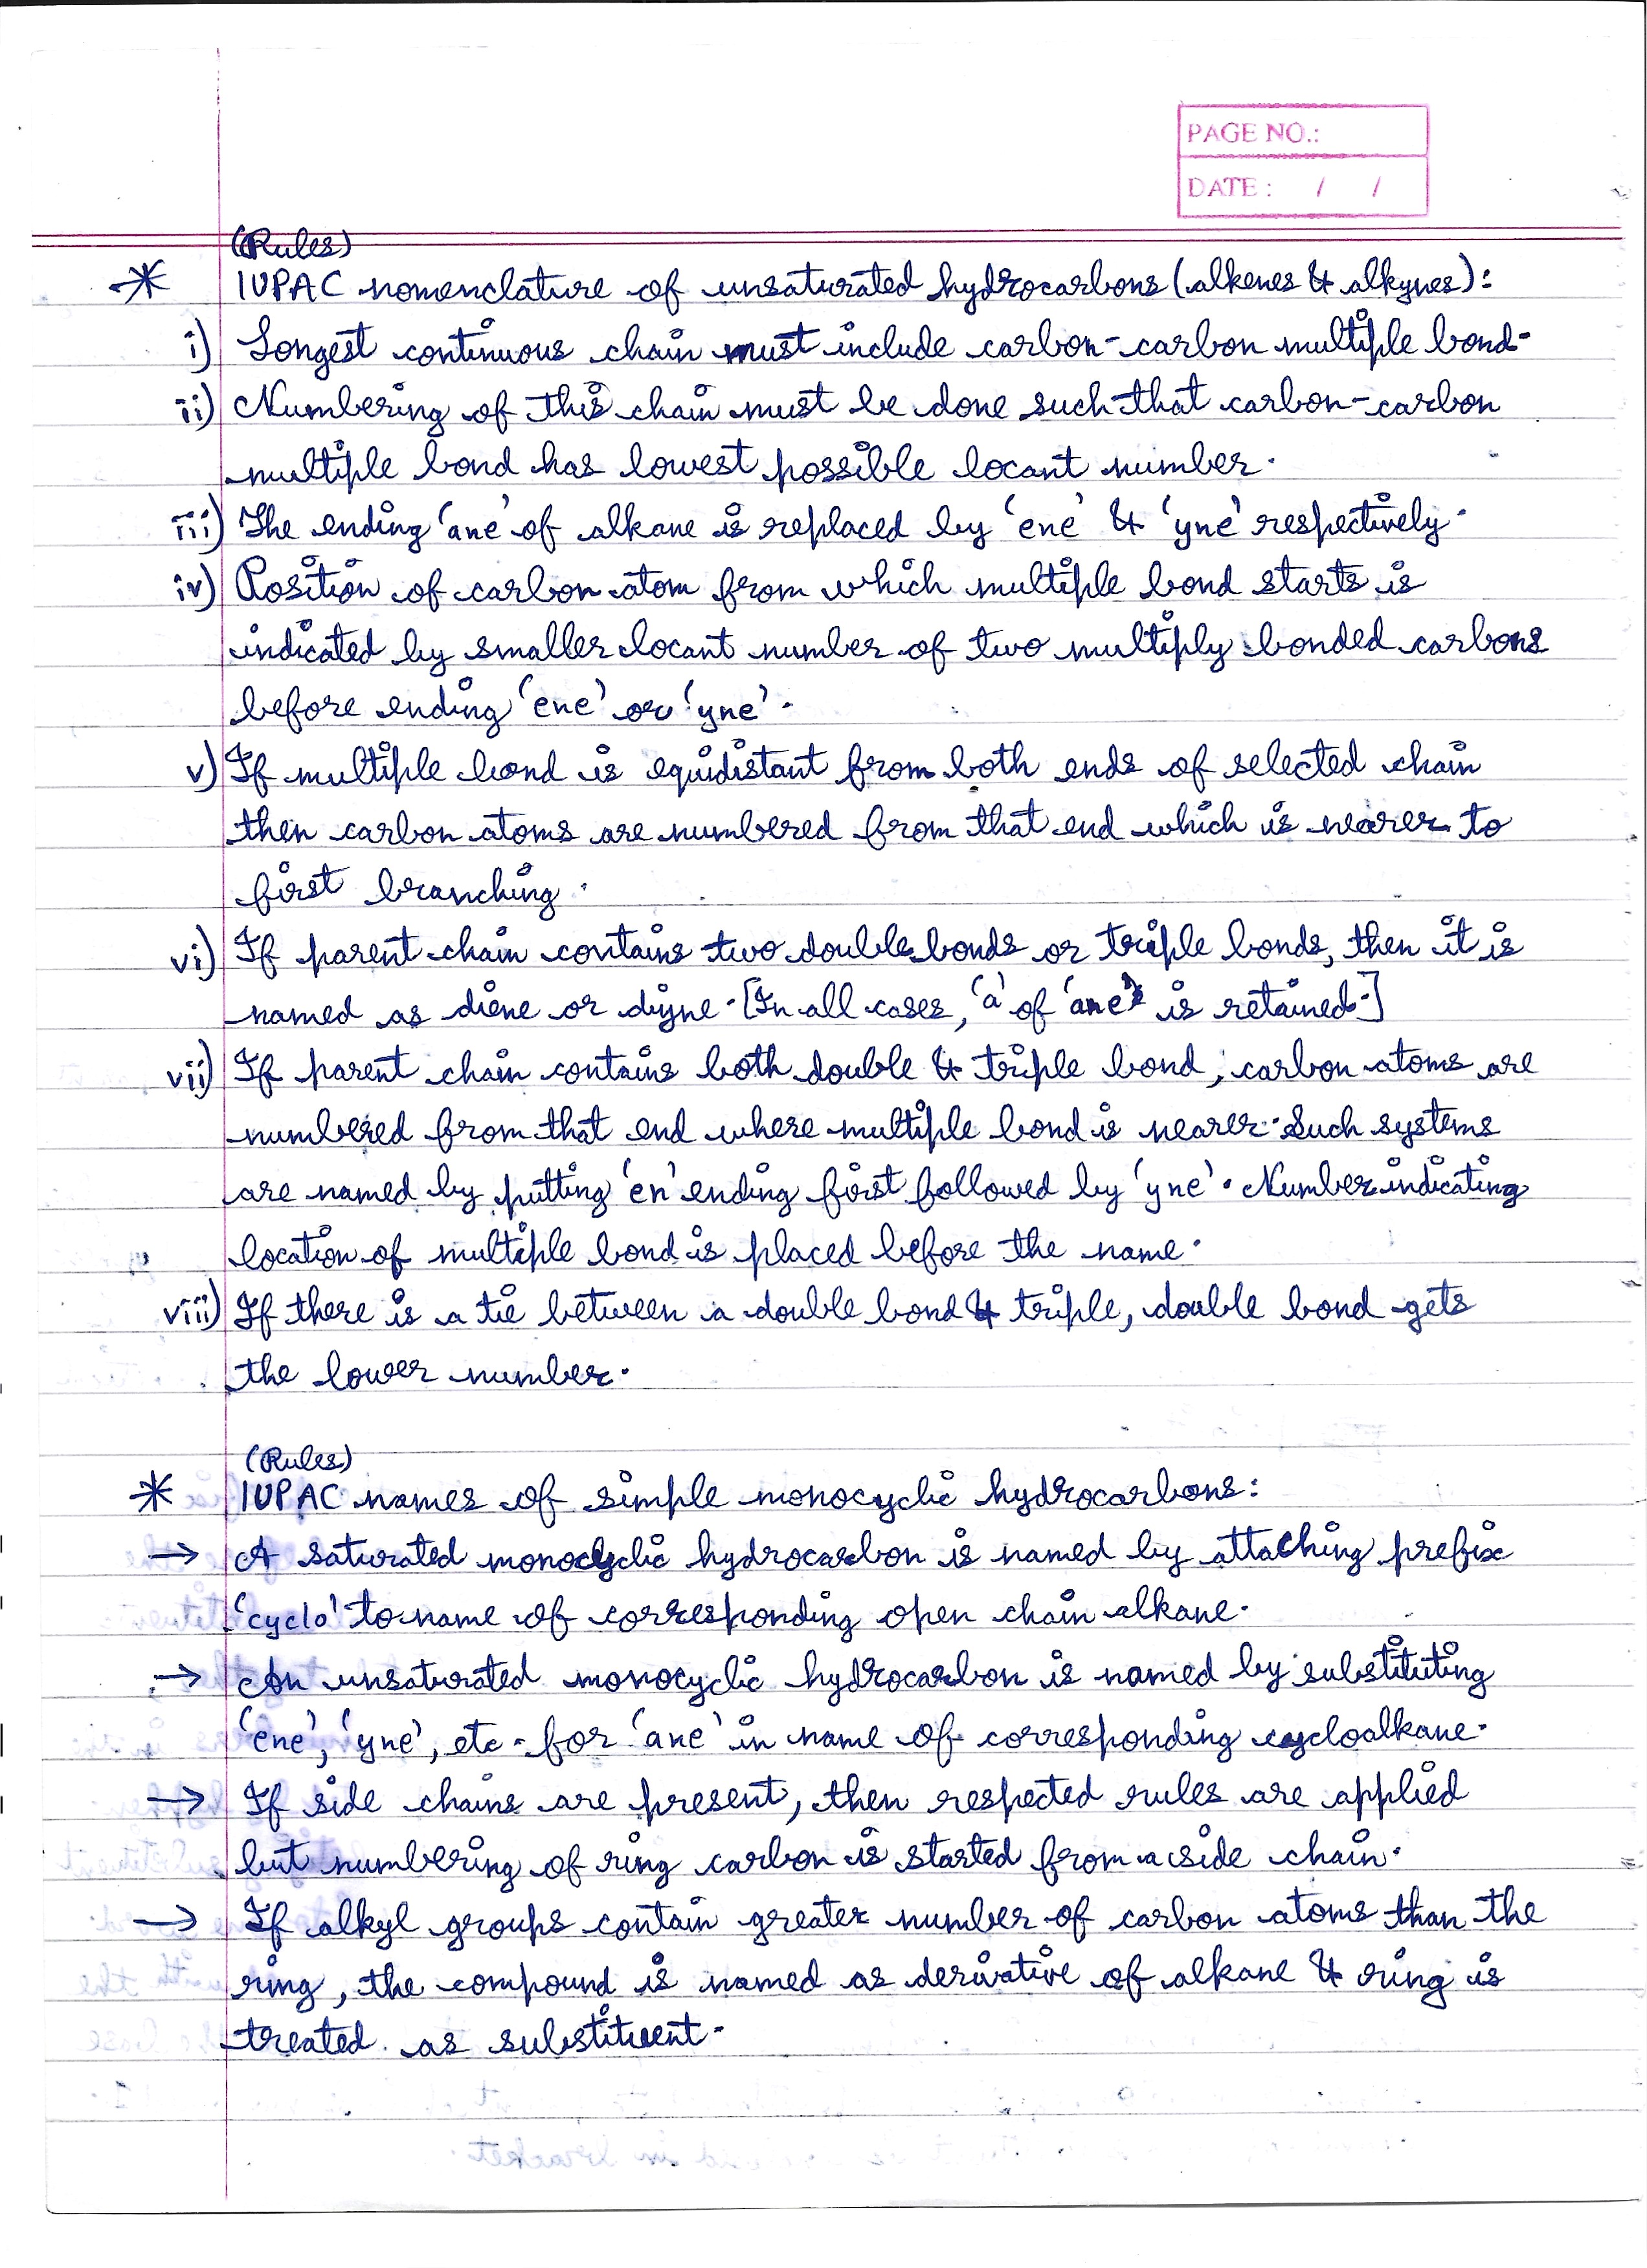 PAGE NO.:
DATE : / /
(Rules)
* IUPAC nomenclature of unsaturated hydrocarbons (alkenes & alkynes):
i) Longest continuous chain must include carbon-carbon multiple bond.
ii) Numbering of this chain must be done such that carbon-carbon
multiple bond has lowest possible locant number.
iii) The ending 'ane' of alkane is replaced by 'ene' & 'yne' respectively.
iv) Position of carbon atom from which multiple bond starts is
indicated by smaller locant number of two multiply bonded carbons
before ending 'ene' or 'yne'.
v) If multiple bond is equidistant from both ends of selected chain
then carbon atoms are numbered from that end which is nearer to
first branching.
vi) If parent chain contains two double bonds or triple bonds, then it is
named as diene or diyne. [In all cases, 'a' of 'ane' is retained.]
vii) If parent chain contains both double & triple bond, carbon atoms are
numbered from that end where multiple bond is nearer. Such systems
are named by putting 'en' ending first followed by 'yne'. Number indicating
location of multiple bond is placed before the name.
viii) If there is a tie between a double bond & triple, double bond gets
the lower number.
(Rules)
* IUPAC names of simple monocyclic hydrocarbons:
→ A saturated monocyclic hydrocarbon is named by attaching prefix
'cyclo' to name of corresponding open chain alkane.
→ An unsaturated monocyclic hydrocarbon is named by substituting
'ene', 'yne', etc. for 'ane' in name of corresponding cycloalkane.
→ If side chains are present, then respected rules are applied
but numbering of ring carbon is started from a side chain.
→ If alkyl groups contain greater number of carbon atoms than the
ring, the compound is named as derivative of alkane & ring is
treated as substituent.